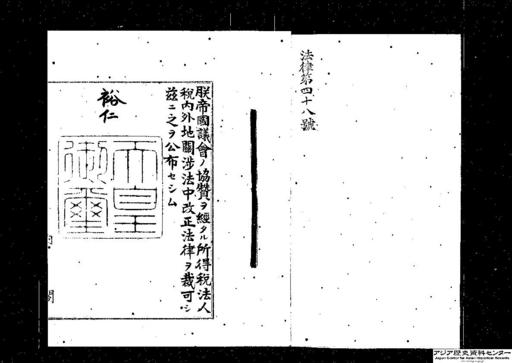 法律第四十八號
朕帝國議會ノ協贊ヲ經タル所得稅法人
稅內外地關涉法中改正法律ヲ裁可シ
茲ニ之ヲ公布セシム
裕仁
天皇
御璽
アジア歴史資料センター
Japan Center for Asian Historical Records